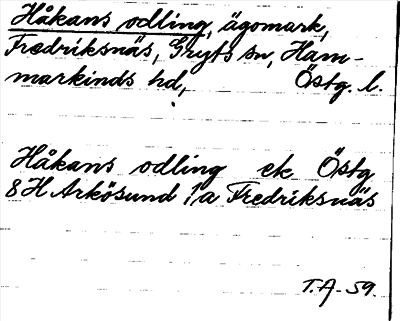 Håkans odling, ägomark,
Fredriksnäs, Gryts sn, Ham-
markinds hd, Östg. l.
Håkans odling ek Östg
8 H Arkösund 1a Fredriksnäs
T.A. 59.